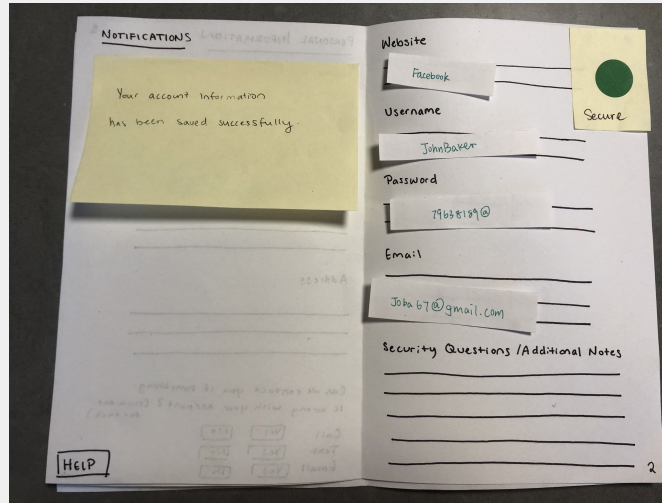 NOTIFICATIONS
Your account information
has been saved successfully.
HELP
Website
Facebook
Secure
Username
JohnBaker
Password
79638189@
Email
Joba67@gmail.com
Security Questions /Additional Notes
2